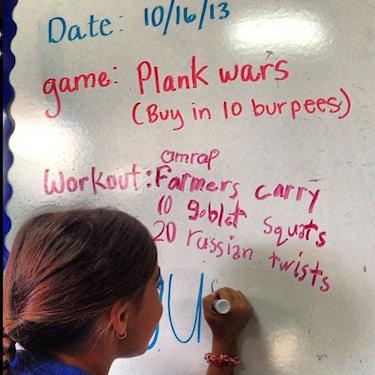 Date: 10/16/13
game: Plank wars
(Buy in 10 burpees)
amrap
Workout: Farmers carry
10 goblet squats
20 russian twists